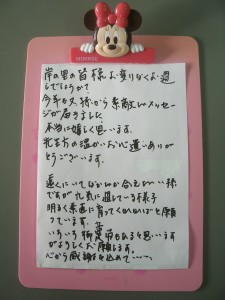 岸の里の皆様お変りなくお過
しでしょうか?
今年も又 姉から素敵なメッセー
ジが届きました。
本当に嬉しく思います。
先生方の温かいお心遣いありが
とうございます。
遠くにいてなかなか会えない
ですが元気に過している様子
明るく素直に育ってくれればと願
っています。
いろいろ 事もあると思います
がよろしくお願します。
心から感謝を込めて……